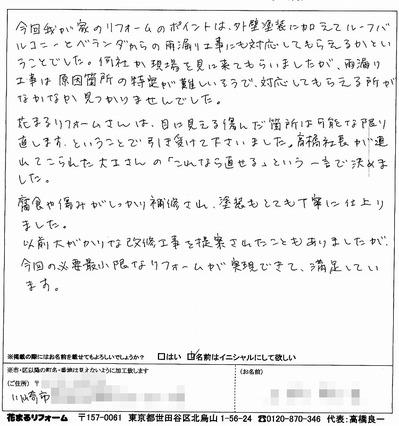 今回我が家のリフォームのポイントは、外壁塗装に加えてルーフバ
ルコニーとベランダからの雨漏り工事にも対応してもらえるかとい
うことでした。何社か現場を見に来てもらいましたが、雨漏り
工事は原因箇所の特定が難しいそうで、対応してもらえる所が
なかなか見つかりませんでした。
花まるリフォームさんは、目に見える傷んだ箇所は可能な限り
直します、ということで引き受けて下さいました。高橋社長が連
れてこられた大工さんの「これなら直せる」という一言で決めま
した。
腐食や傷みがしっかり補修され、塗装もとても丁寧に仕上り
ました。
以前大がかりな改修工事を提案されたこともありましたが、
今回の必要最小限なリフォームが実現できて、満足してい
ます。
※掲載の際にはお名前を載せてもよろしいでしょうか? □はい ☑名前はイニシャルにして欲しい
※市・区以降の町名・番地は見えないように加工致します
(ご住所) 〒
(お名前)
川崎市
花まるリフォーム 〒157-0061 東京都世田谷区北烏山 1-56-24 ☎0120-870-346 代表:高橋良一